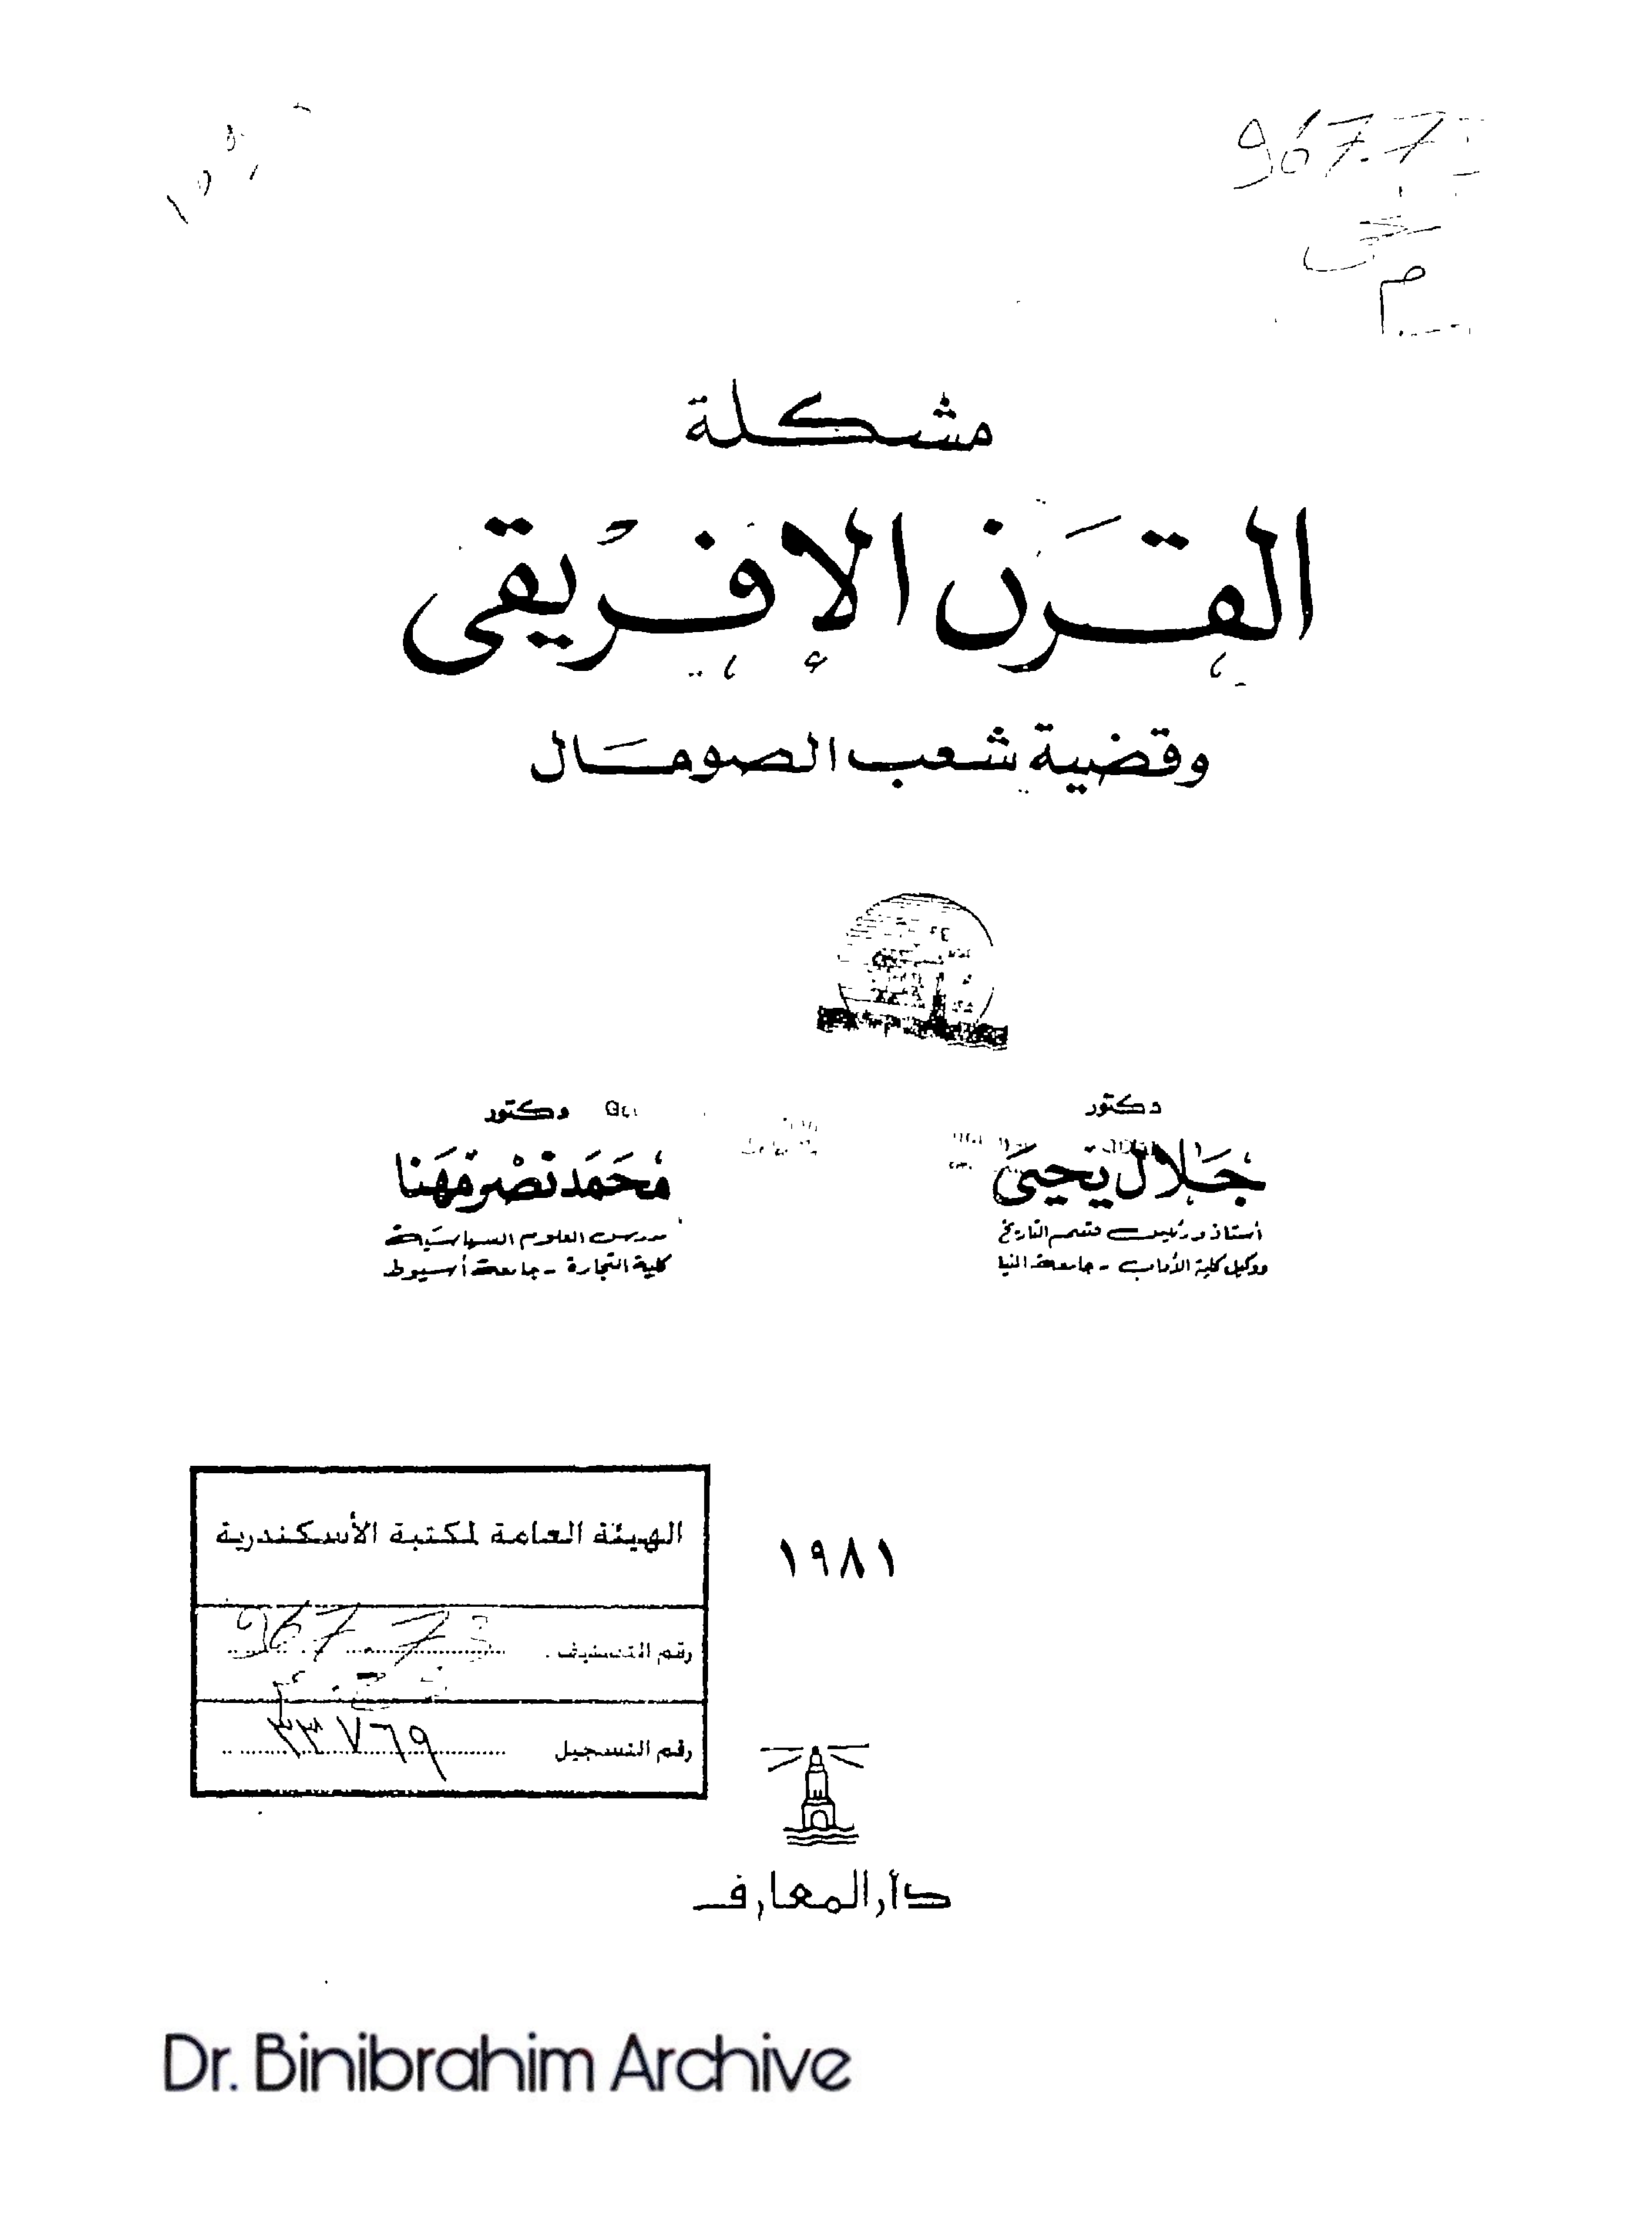 967.73
م
مشكلة
القرن الإفريقى
وقضية شعب الصومال
دكتور
جلال يحيى
أستاذ ورئيس قسم التاريخ
ووكيل كلية الآداب - جامعة المنيا
دكتور
محمد نصر مهنا
مدرس العلوم السياسية
كلية التجارة - جامعة أسيوط
الهيئة العامة لمكتبة الأسكندرية
رقم التصنيف 967.73
رقم التسجيل ٣٣٧٦٩
١٩٨١
دار المعارف
Dr. Binibrahim Archive